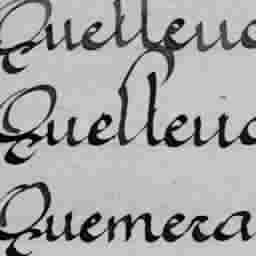 Quelleuc
Quelleuc
Quemera